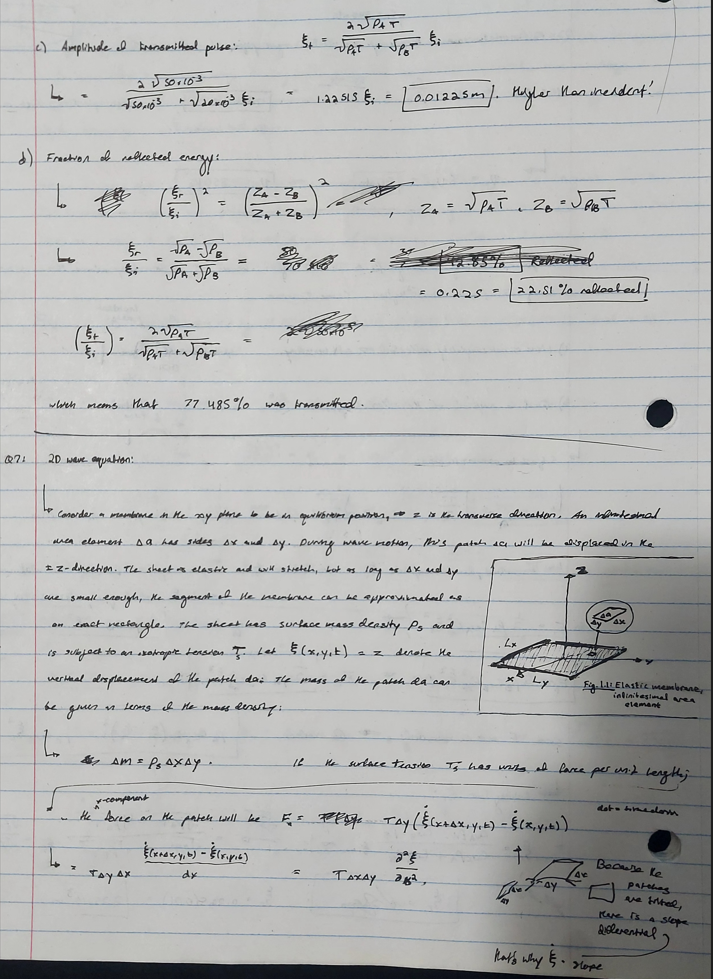 c) Amplitude of transmitted pulse: ξt = 2√ρAT / (√ρAT + √ρBT) ξi
↳ = 2√50×10⁻³ / (√50×10⁻³ + √20×10⁻³) ξi = 1.22515 ξi = 0.01225m. Higher than incident!
d) Fraction of reflected energy:
↳ (ξr/ξi)² = ((ZA - ZB)/(ZA + ZB))² , ZA = √ρAT, ZB = √ρBT
↳ ξr/ξi = (√ρA - √ρB)/(√ρA + √ρB) = = 12.85% Reflected
= 0.225 = 22.51% reflected
(ξt/ξi) = 2√ρAT / (√ρAT + √ρBT) =
which means that 77.485% was transmitted.
Q7: 2D wave equation:
↳ Consider a membrane in the xy plane to be in equilibrium position, z is the transverse direction. An infinitesimal
area element Δa has sides Δx and Δy. During wave motion, this patch will be displaced in the
± z-direction. The sheet is elastic and will stretch, but as long as Δx and Δy
are small enough, the segment of the membrane can be approximated as
an exact rectangle. The sheet has surface mass density ρs and
is subject to an isotropic tension Ts. Let ξ(x,y,t) = z denote the
vertical displacement of the patch da; The mass of the patch da can
be given in terms of the mass density:
z
Δa
Δy Δx
Lx
x Ly
Fig. 1.1: Elastic membrane,
infinitesimal area
element
↳ Δm = ρs ΔxΔy. If the surface tension Ts has units of force per unit length;
x-component
the force on the patch will be F = TΔy(ξ̇(x+Δx,y,t) - ξ̇(x,y,t))
↳ = TΔyΔx (ξ̇(x+Δx,y,t) - ξ̇(x,y,t))/dx = TΔxΔy ∂²ξ/∂x²,
Because the
patches
are tilted,
there is a slope
differential
Δx
Δy
that's why ξ̇ - slope